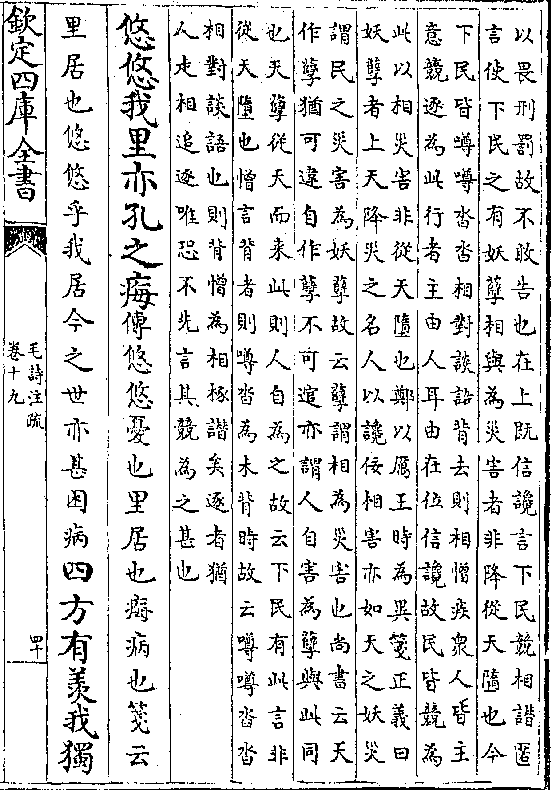 以畏刑罰故不敢告也在上既信讒言下民競相譖匿
言使下民之有妖孽相與為災害者非降從天隨也今
下民皆噂噂沓沓相對談語背去則相憎疾衆人皆主
意競逐為此行者主由人耳由在位信讒故民皆競為
此以相災害非從天隨也鄭以厲王時為異箋正義曰
妖孽者上天降災之名人以讒佞相害亦如天之妖災
謂民之災害為妖孽故云孽謂相為災害也尚書云天
作孽猶可違自作孽不可逭亦謂人自害為孽與此同
也天孽從天而来此則人自為之故云下民有此言非
從天隨也憎言背者則噂沓為未背時故云噂噂沓沓
相對談語也則背憎為相椓譖矣逐者猶
人走相追逐唯恐不先言其競為之甚也
悠悠我里亦孔之痗傳悠悠憂也里居也痗病也箋云
里居也悠悠乎我居今之世亦甚困病四方有羨我獨
欽定四庫全書
毛詩注疏
卷十九
四十